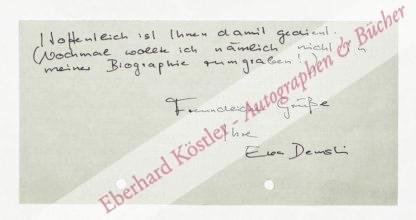 Hoffentlich ist Ihnen damit gedient.
(Nochmal wollte ich nämlich nicht in
meiner Biographie rumgraben!)
Freundliche Grüße
Ihre
Eva Demski
Eberhard Köstler - Autographen & Bücher